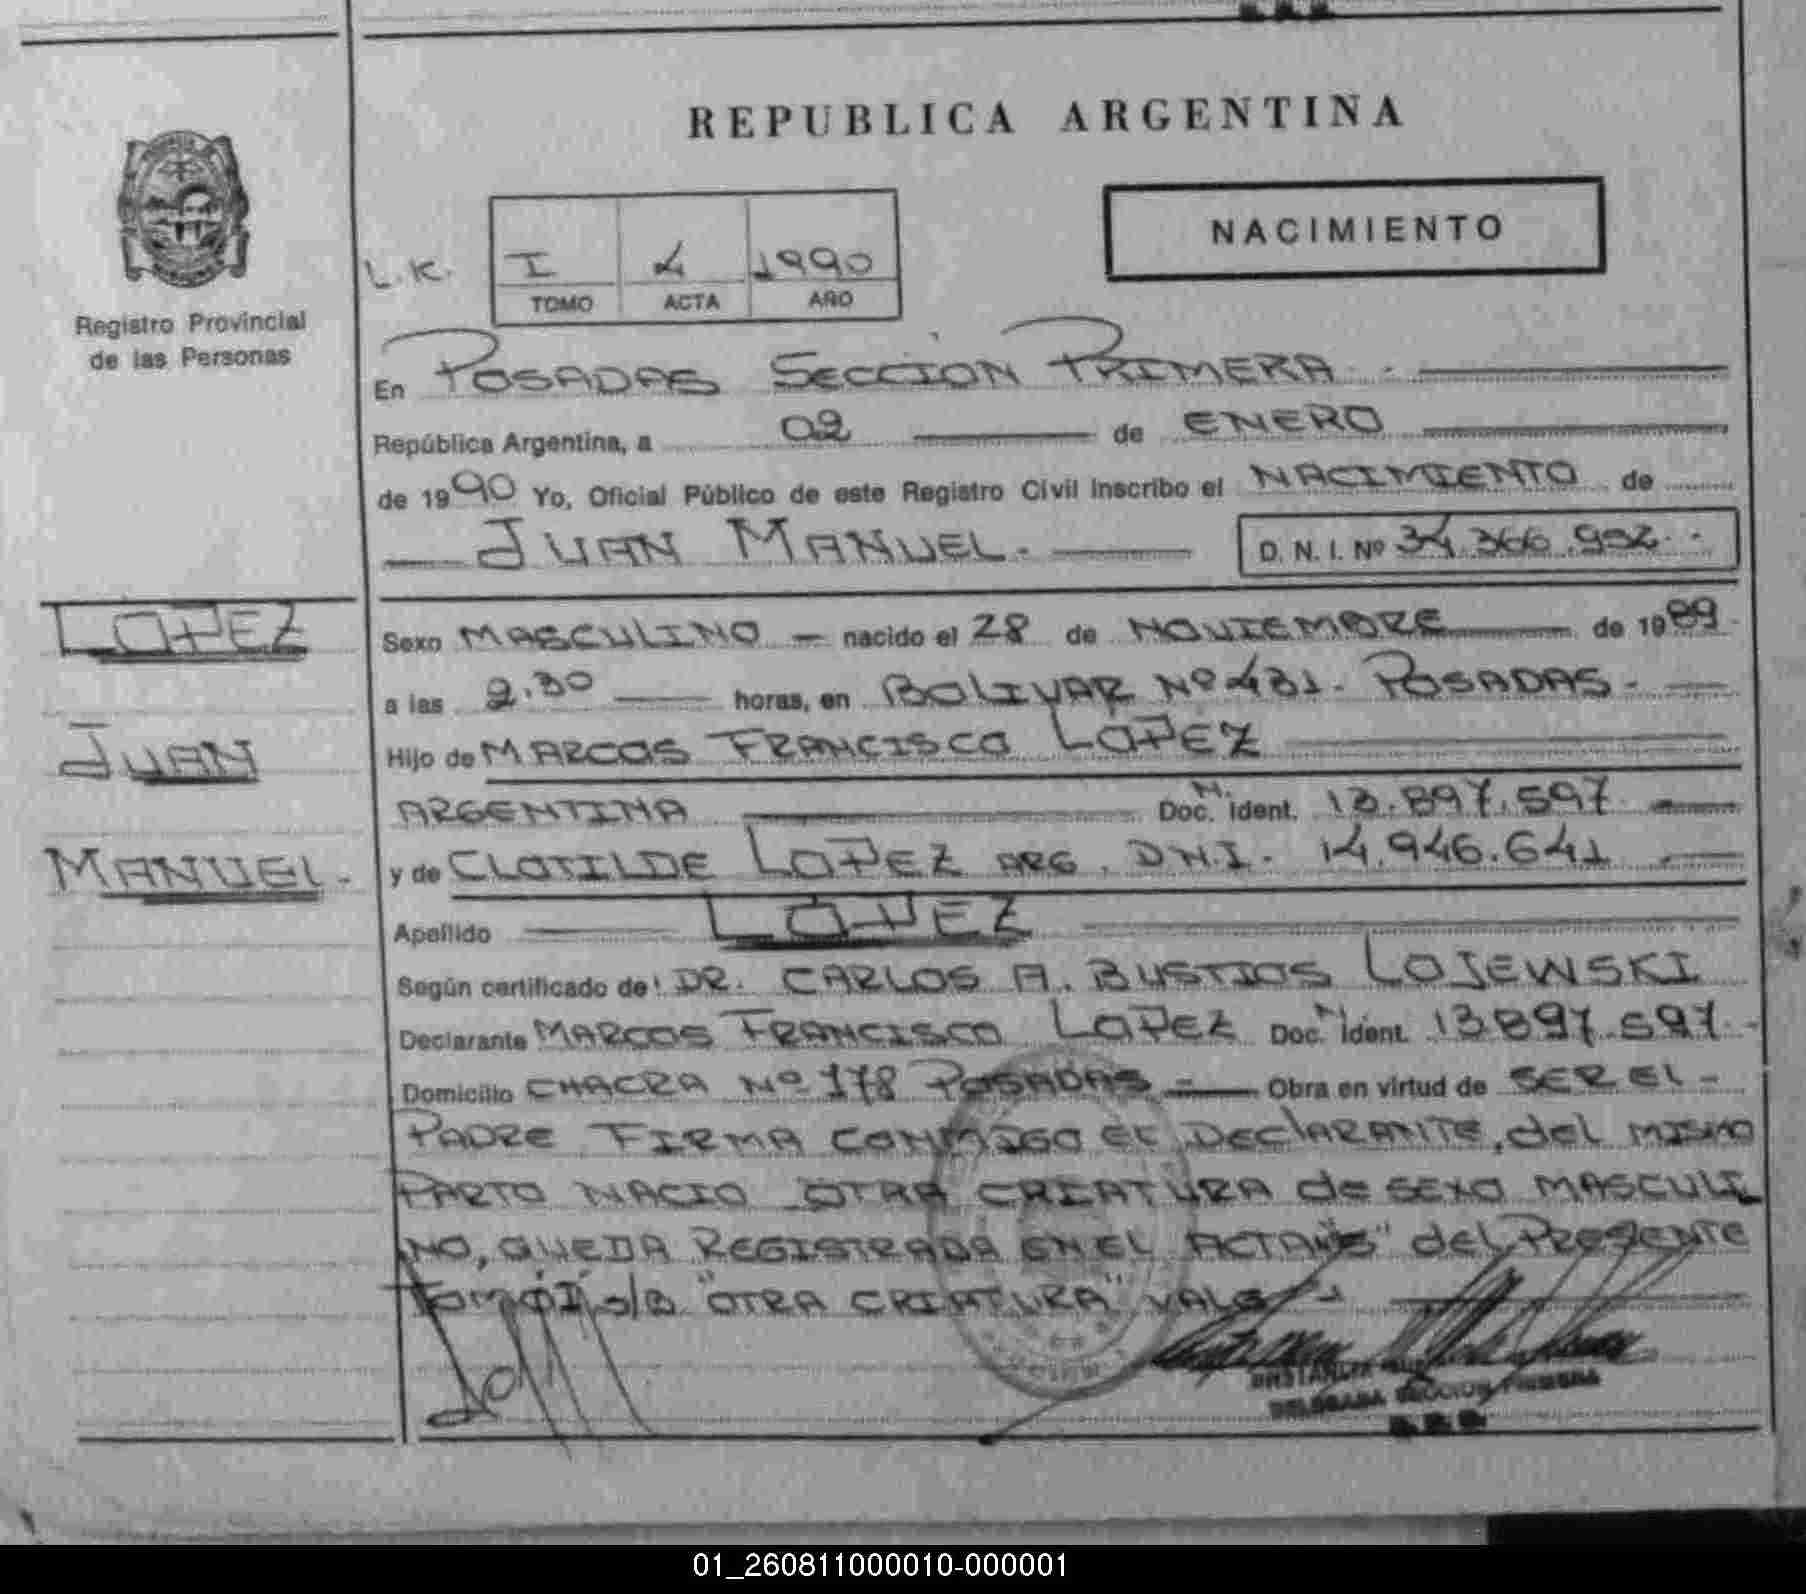 REPUBLICA ARGENTINA
NACIMIENTO
L.K.
I 4 1990
TOMO ACTA AÑO
Registro Provincial
de las Personas
En POSADAS SECCION PRIMERA
República Argentina, a 02 de ENERO
de 1990 Yo, Oficial Público de este Registro Civil inscribo el NACIMIENTO de
JUAN MANUEL.- D. N. I. Nº 34.366.992.-
LOPEZ
JUAN
MANUEL.-
Sexo MASCULINO - nacido el 28 de NOVIEMBRE de 1989
a las 2.30 horas, en BOLIVAR Nº 431. POSADAS.-
Hijo de MARCOS FRANCISCO LOPEZ
ARGENTINA Doc. N. Ident. 13.897.597
y de CLOTILDE LOPEZ ARG. D.N.I. 14.946.641
Apellido LOPEZ
Según certificado de: DR. CARLOS A. BUSTIOS LOJEWSKI
Declarante MARCOS FRANCISCO LOPEZ Doc. N. Ident. 13.897.597.-
Domicilio CHACRA Nº 178 POSADAS - Obra en virtud de SER EL -
PADRE FIRMA CONMIGO EL DECLARANTE, del MISMO
PARTO NACIO OTRA CRIATURA de SEXO MASCULI
NO, QUEDA REGISTRADA EN EL ACTA del PRESENTE
TOMO I s/B "OTRA CRIATURA" VALE
DELEGADA SECCION PRIMERA
01_260811000010-000001